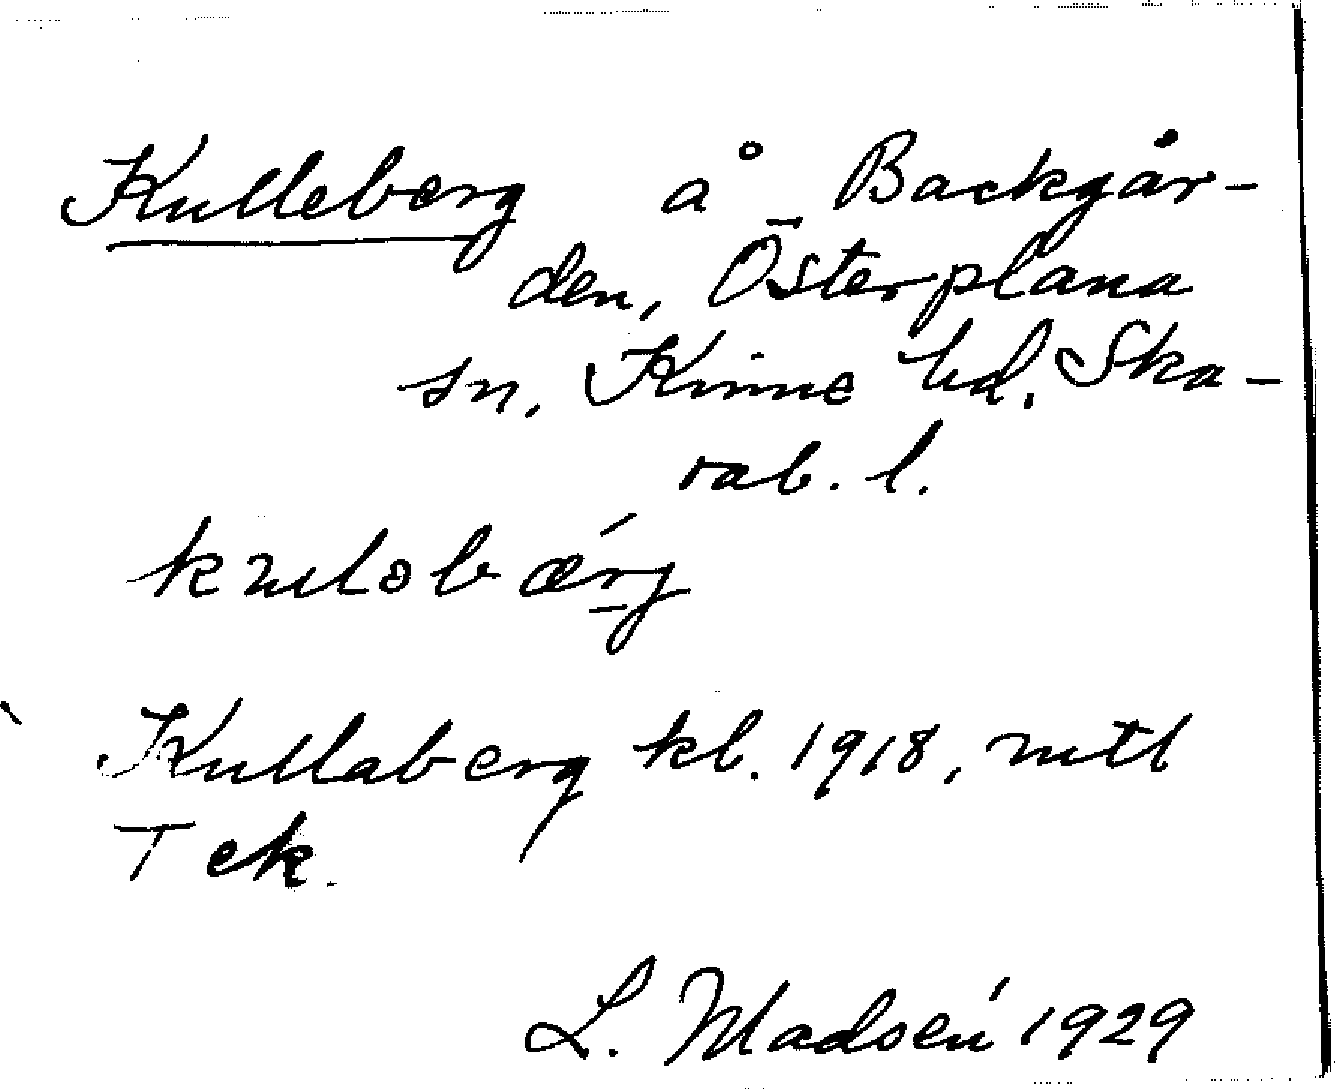 Kulleberg å Backgår-
den, Österplana
sn, Kinne hd. Ska-
rab. l.
Kullaberg kl. 1918,
T ek.
L. Madsén 1929